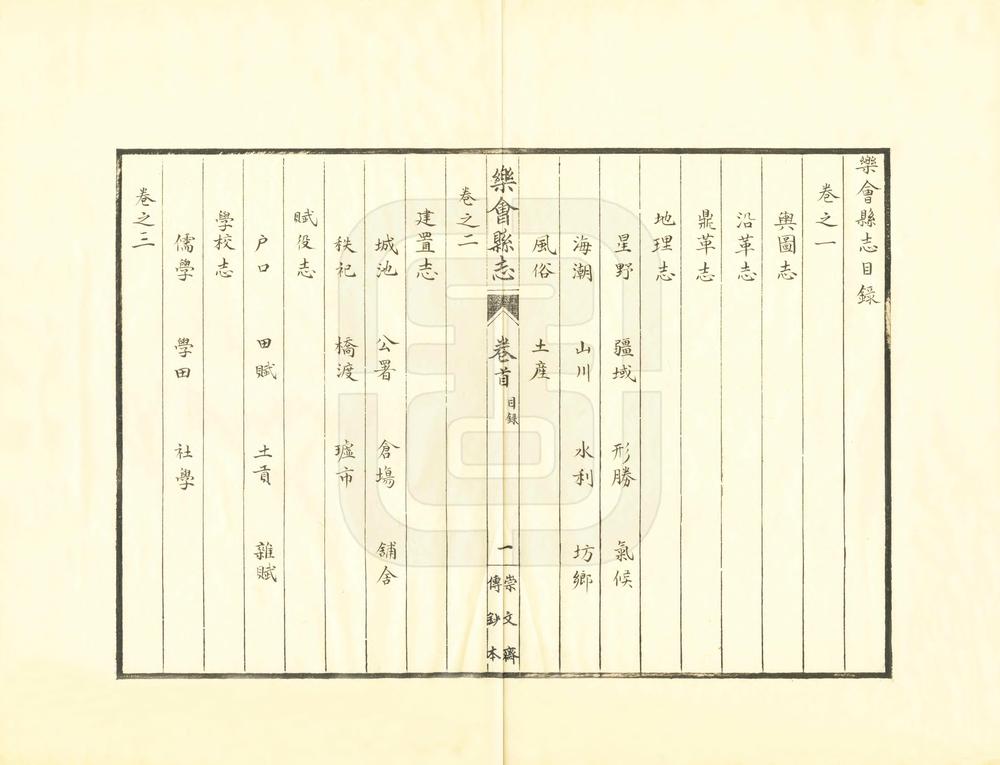 樂會縣志目錄
卷之一
輿圖志
沿革志
鼎革志
地理志
星野 疆域 形勝 氣候
海潮 山川 水利 坊鄉
風俗 土産
樂會縣志 卷首 目錄 一 崇文齋傳鈔本
卷之二
建置志
城池 公署 倉塲 舖舍
秩祀 橋渡 墟市
賦役志
户口 田賦 土貢 雜賦
學校志
儒學 學田 社學
卷之三